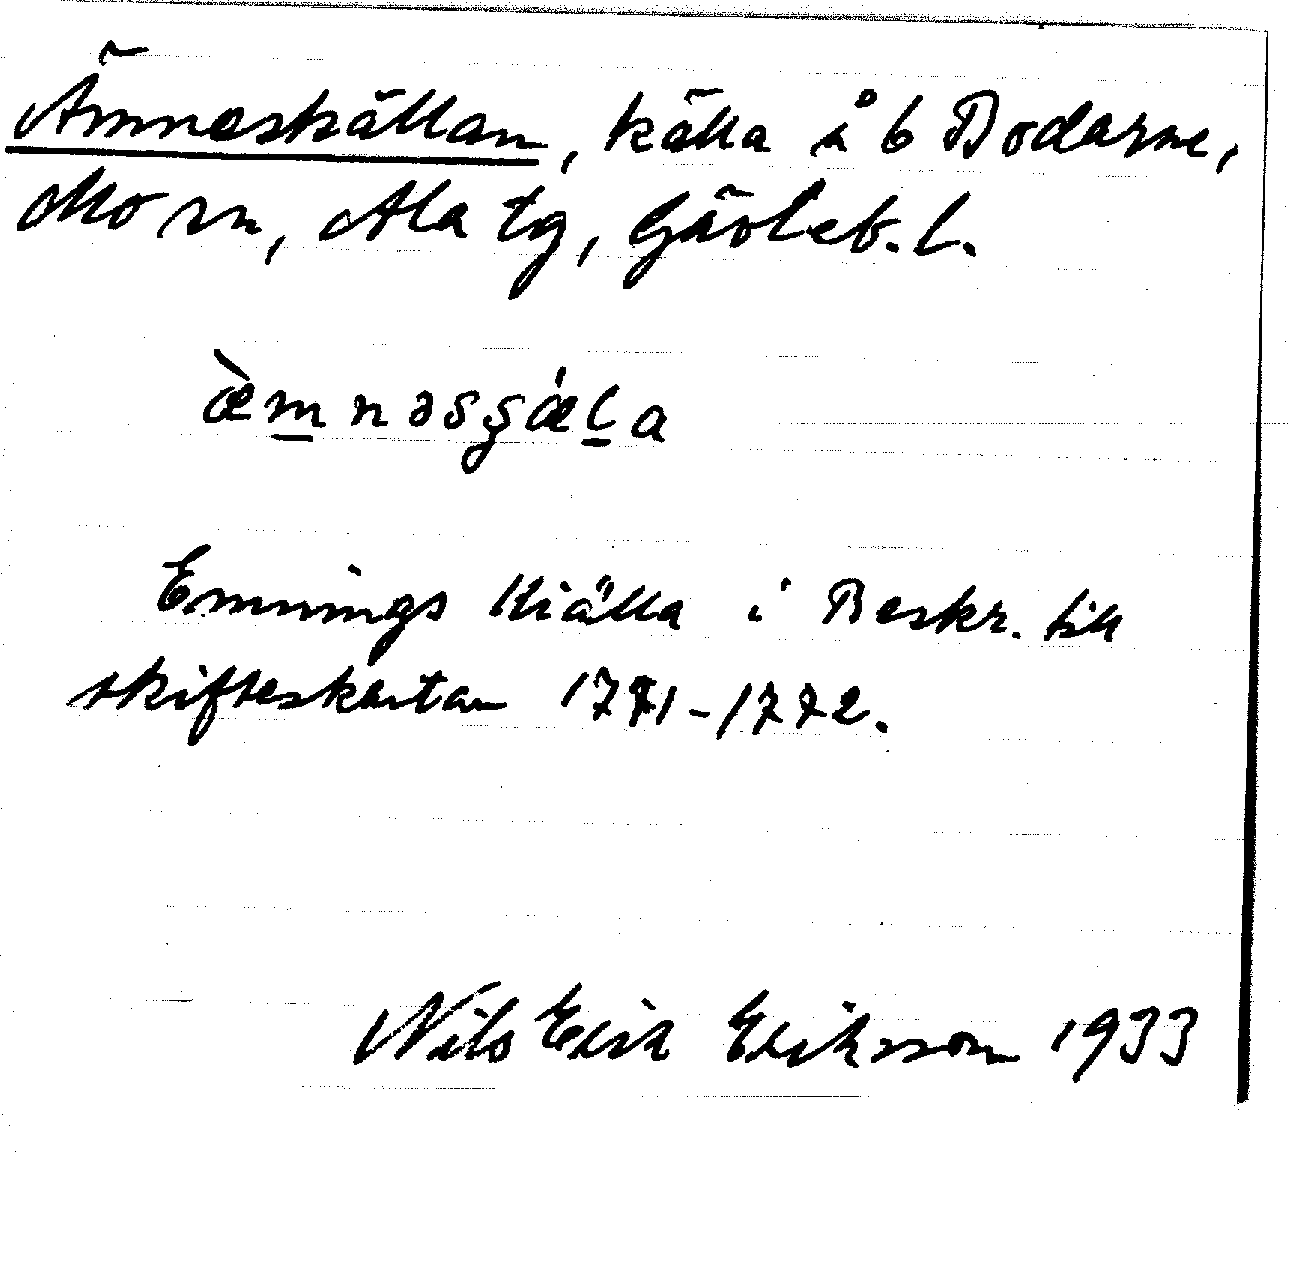 Ämneskällan, källa å b Bodarne,
Mo sn, Ala tg, Gävleb. l.
æ̀m̲nəsʂǽl̲a
Emnings Kiälla i Beskr. till
skifteskartan 1771-1772.
Nils Erik Eriksson 1933